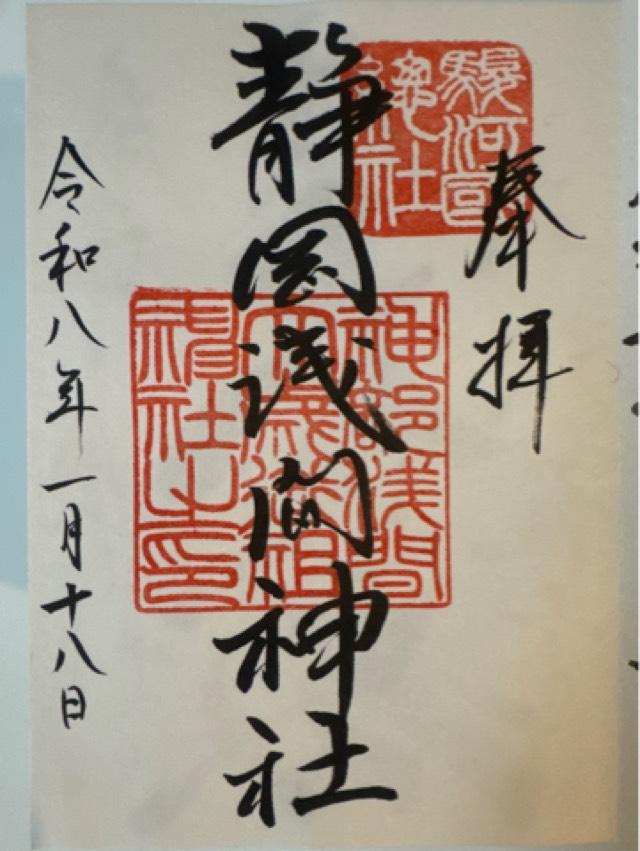 奉拝
駿河国
総社
静岡浅間神社
神部浅間
大歳御祖
神社之印
令和八年一月十八日